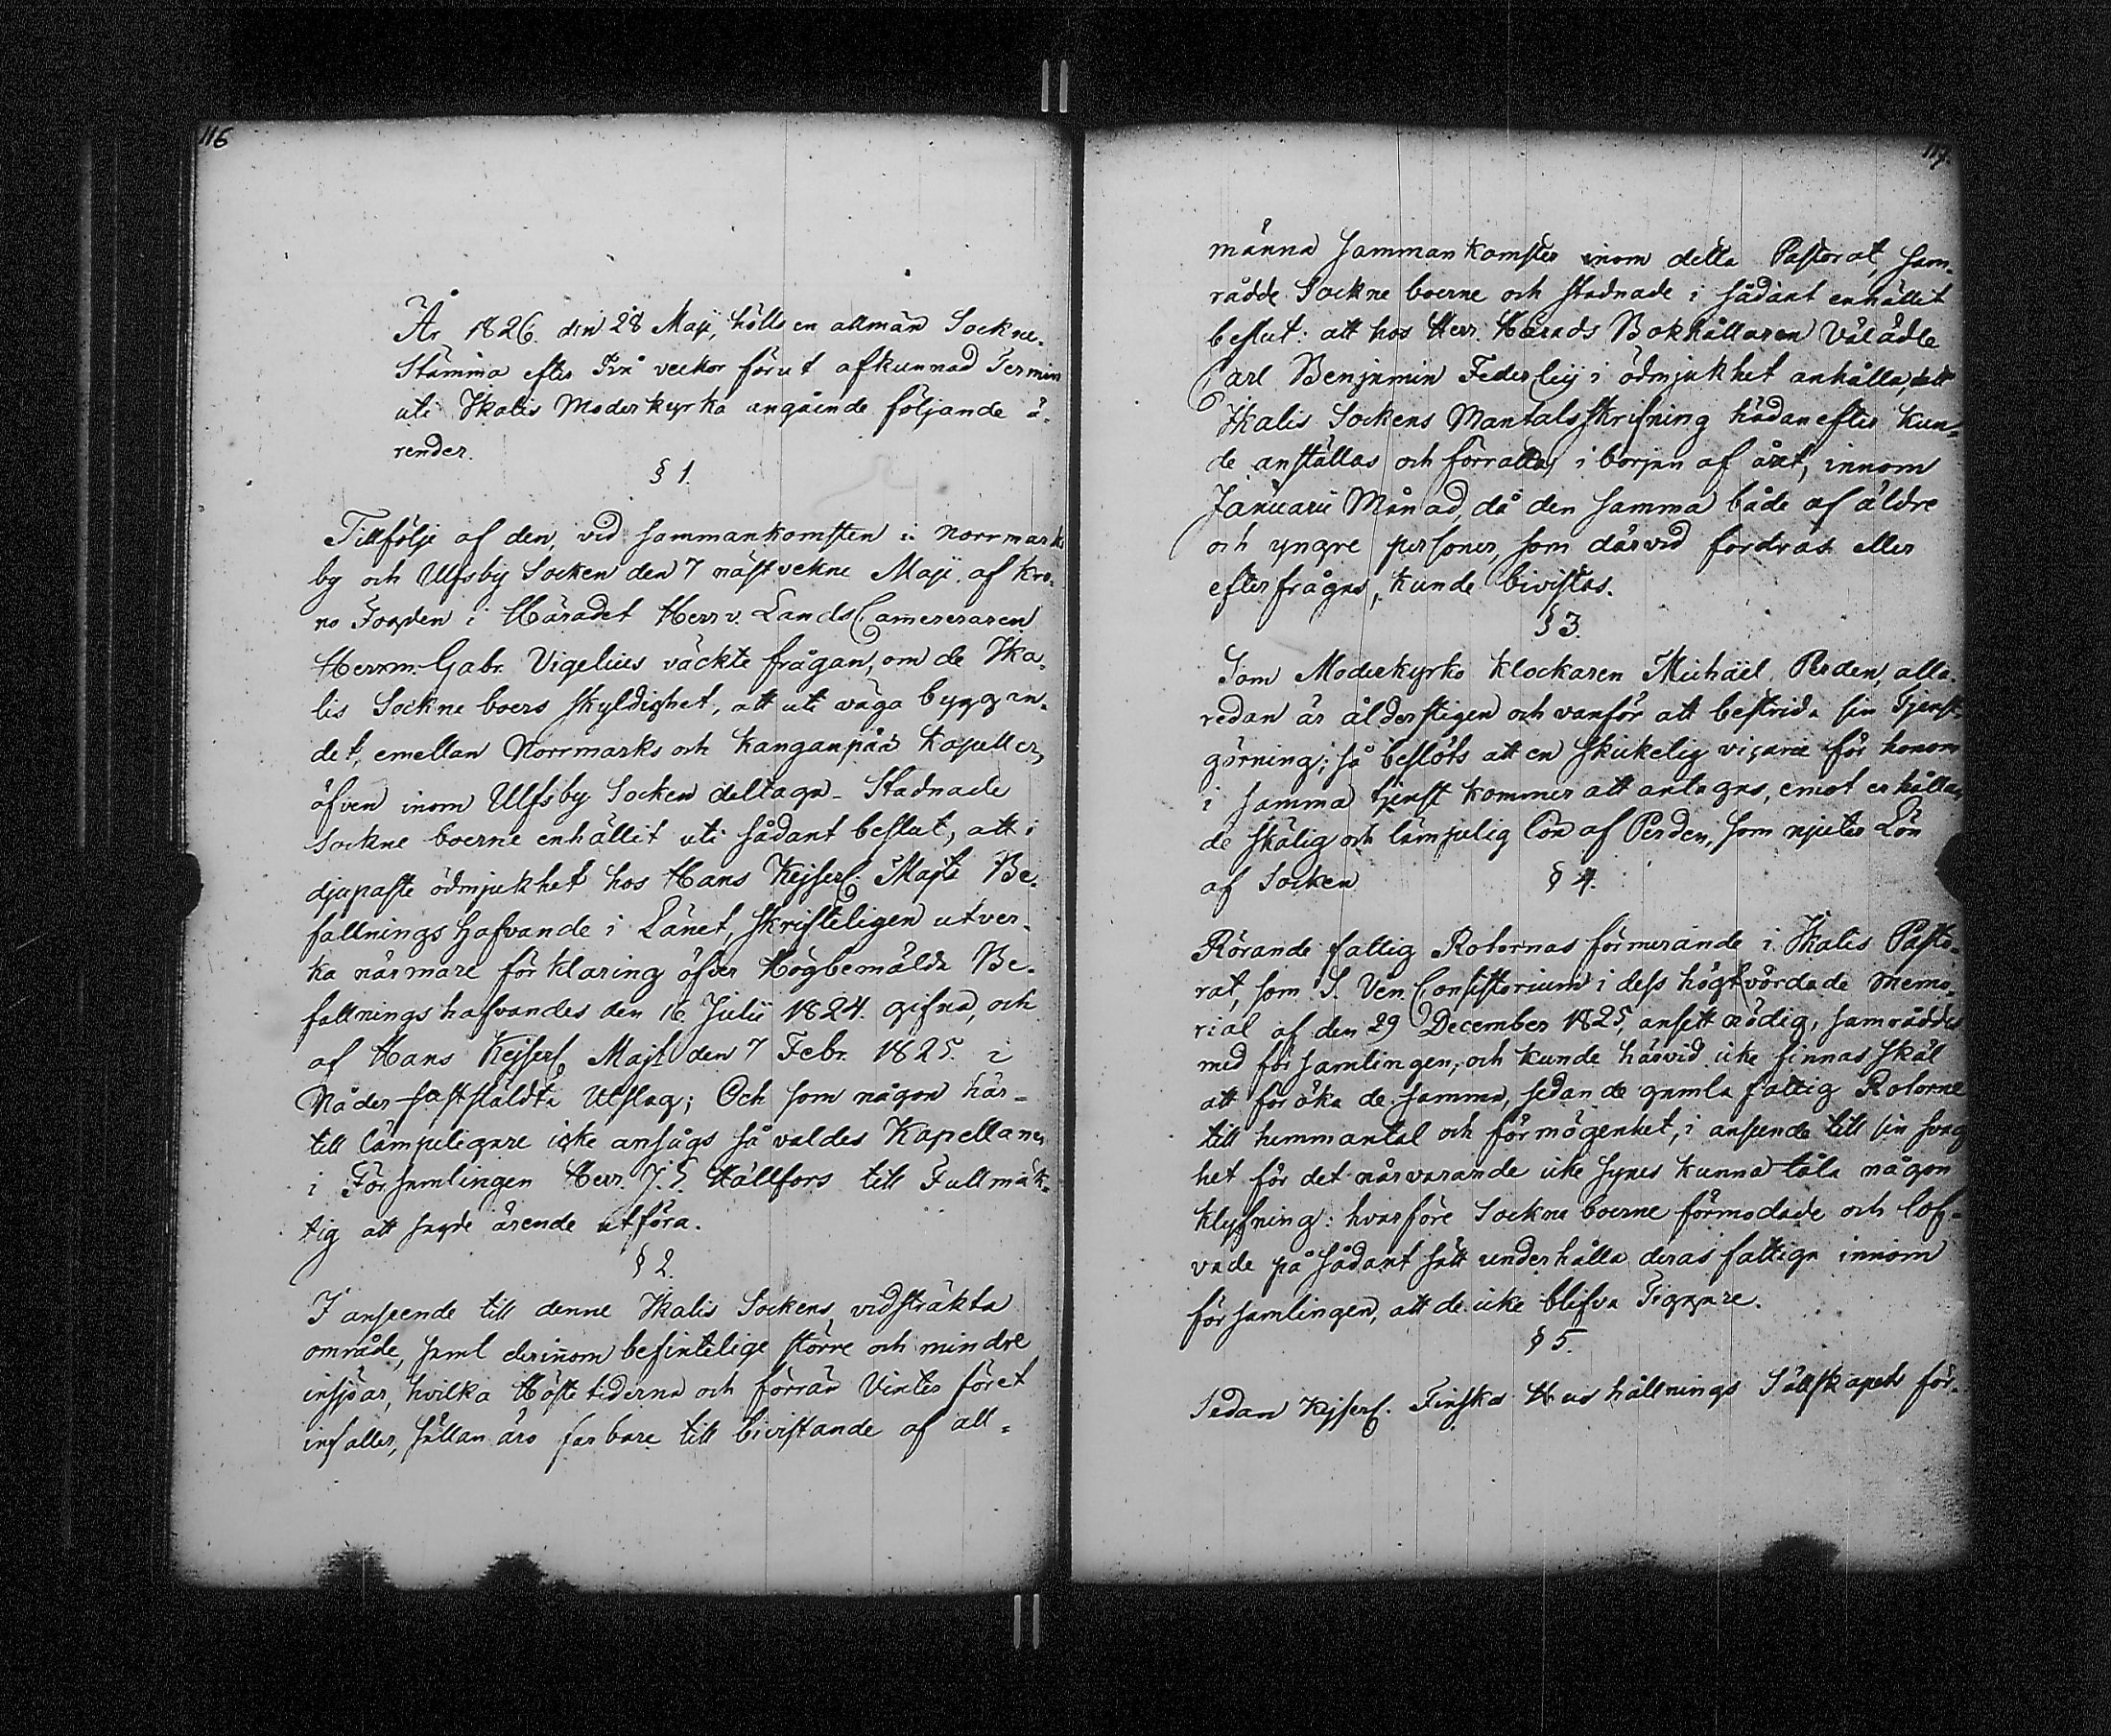 116
År 1826. den 28 Maji, hölls en allmän Sockne-
Stämma efter Två veckor förut afkunnad Termin
uti Ikalis Moderkyrka angående följande ä-
render.
§ 1.
Tillfölje af den, vid sammankomsten i Norrmarks
by och Ulfsby Socken den 7 nästvekne Maji af Kro-
no Fogden i Häradet Herr v. Lands Camereraren
Herrm. Gabr. Vigelius väckte frågan, om de Ika-
lis Sockne boers skyldighet, att uti väga byggan-
det, emellan Norrmarks och Kanganpää Kapeller,
äfven inom Ulfsby Socken deltaga - Stadnade
Sockne boerne enhällit uti sådant beslut, att i
djupaste ödmjukhet hos Hans Kejserl. Majts Be-
fallnings Hafvande i Länet, skrifteligen utver-
ka närmare för klaring öfver Högbemälde Be-
fallnings hafvandes den 16 Julii 1824. gifna, och
af Hans Kejserl. Majt den 7 Febr. 1825. i
Nåder fastställdta Utslag; Och som någon här-
till lämpeligare icke ansågs så valdes Kapellanen
i Församlingen Herr. J. E. Hällfors till Fullmäk-
tig att sagde ärende utföra.
§ 2.
I anseende till denne Ikalis Sockens vidsträkta
område, samt derinom befintelige större och mindre
insjöar, hvilka Höste tiderna och förrän Vinter föret
infaller, sällan äro farbare till bivistande af all-
117.
männa Sammankomster inom detta Pastorat, Sam-
rådde Sockne boerne och stadnade i sådant enhällit
beslut: att hos Herr. Härads Bokhållaren Välädle
Carl Benjamin Federley i ödmjukhet anhålla, att
Ikalis Sockens Mantalsskrifning hädanefter kun-
de anställas och förrättas i början af året, innom
Januarii Månad, då den samma både af äldre
och yngre personer, som därvid fordras eller
efterfrågas, kunde bivistas.
§ 3.
Som Moderkyrko Klockaren Michäel Perden, alla-
redan är ålderstigen och vanför att bestrida sin Tjenst-
görning; så beslöts att en skickelig vicarie för honom
i samma tjenst kommer att antagas, emot erhållan-
de skälig och lämpelig lön af Perden, som njuter Lön
af Socken
§ 4.
Rörande fattig Rotornas formerande i Ikalis Pasto-
rat, som S. Ven. Consistorium i dess högtvördade memo-
rial af den 29 December 1825, ansett nödig, samråddes
med församlingen; och kunde härvid icke finnas skäl
att föröka de samma, sedan de gamla fattig Rotorne
till hemmantal och förmögenhet, i anseende till sin svag
het för det närvarande icke synes kunna tåla någon
klyfning: hvarföre Sockne boerne förmodade och lof-
vade på sådant sätt underhålla deras fattiga innom
församlingen, att de icke blifva Tiggare.
§ 5.
Sedan Kejserl. Finska Hushållnings Sällskapet för-